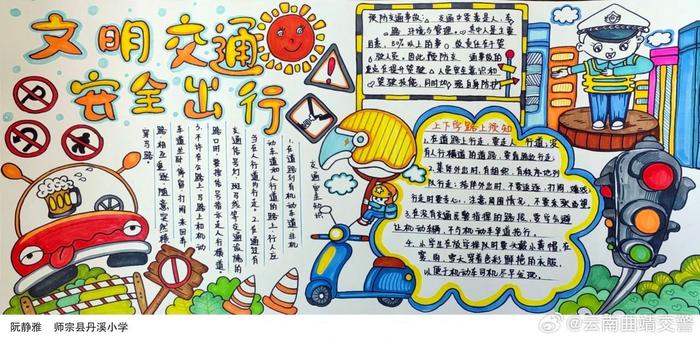 文明交通
安全出行
预防交通事故、交通中要素是人、车、
路、环境与管理。其中人是主要
因素,85%以上的事故发生在于驾
驶人员。因此预防交通事故的
重点在提升驾驶人员安全意识和
驾驶技能,同时加强自身防护
交通安全知识
1.在道路划有机动车道、非机
动车道和人行道的路上,行人应
当在人行道内行走。2.在通过有
交通信号灯、斑马线等交通设施的
路口时,要按信号指示走人行横道。
3.不许在公路上、马路上和机动
车道上玩耍、停留、打闹
路上相互追逐,随意突然横
穿马路。
上下学路上须知
1.在道路上行走,要走人行道,没
有人行横道的道路,要靠路边行走;
2.集体外出时,有组织、有秩序地列
队行走;结伴外出时,不要追逐、打闹、嬉戏;
行走时要专心,注意周围情况,不要东张西望
3.在没有交通民警指挥的路段,要学会避
让机动车辆,不与机动车争道抢行。
4.小学生在放学排队时要头戴小黄帽,在
雾、雨、雪天穿着色彩鲜艳的衣服,
以便于机动车司机尽早发现。
阮静雅 师宗县丹溪小学
@云南曲靖交警